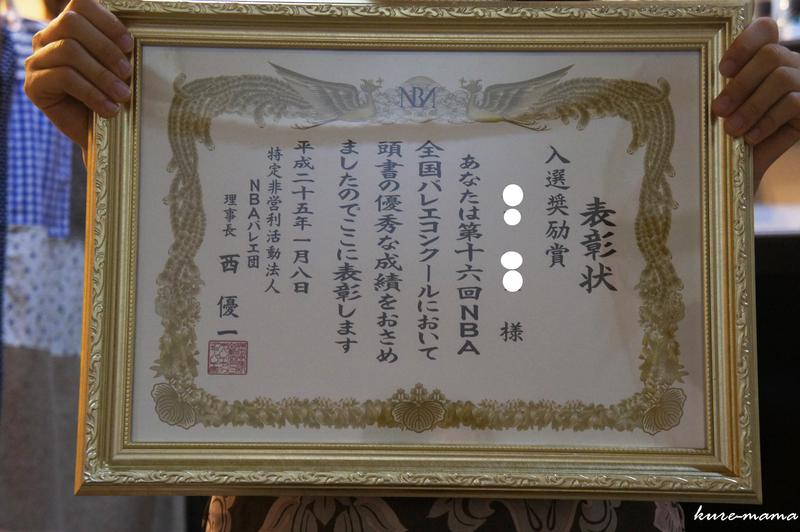 NBA
表彰状
入選奨励賞
様
あなたは第十六回NBA
全国バレエコンクールにおいて
頭書の優秀な成績をおさめ
ましたのでここに表彰します
平成二十五年一月八日
特定非営利活動法人
NBAバレエ団
理事長 西 優一
kure-mama